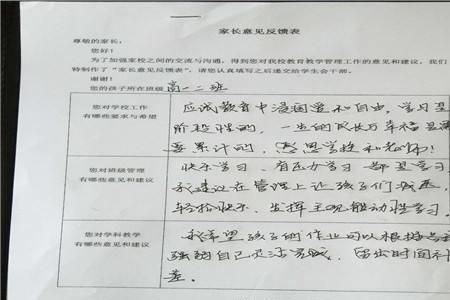 家长意见反馈表
尊敬的家长:
您好!
为了加强家校之间的交流与沟通,得到您对我校教育教学管理工作的意见和建议,我们
特制作了“家长意见反馈表”,请您认真填写之后递交给学生会干部。
谢谢!
您的孩子所在班级 高一二班
您对学校工作
有哪些要求与希望
应试教育中浸润爱和自由,学习是
阶段性的,一生的成长与幸福是需
要累计的,感恩学校和老师!
您对班级管理
有哪些意见和建议
快乐学习,有压力学习都是学习
我建议在管理上让孩子们减压,
轻松快乐,发挥主观能动性学习。
您对学科教学
有哪些意见和建议
我希望孩子们的作业可以根据
强弱自己灵活完成,留出时间补
差。